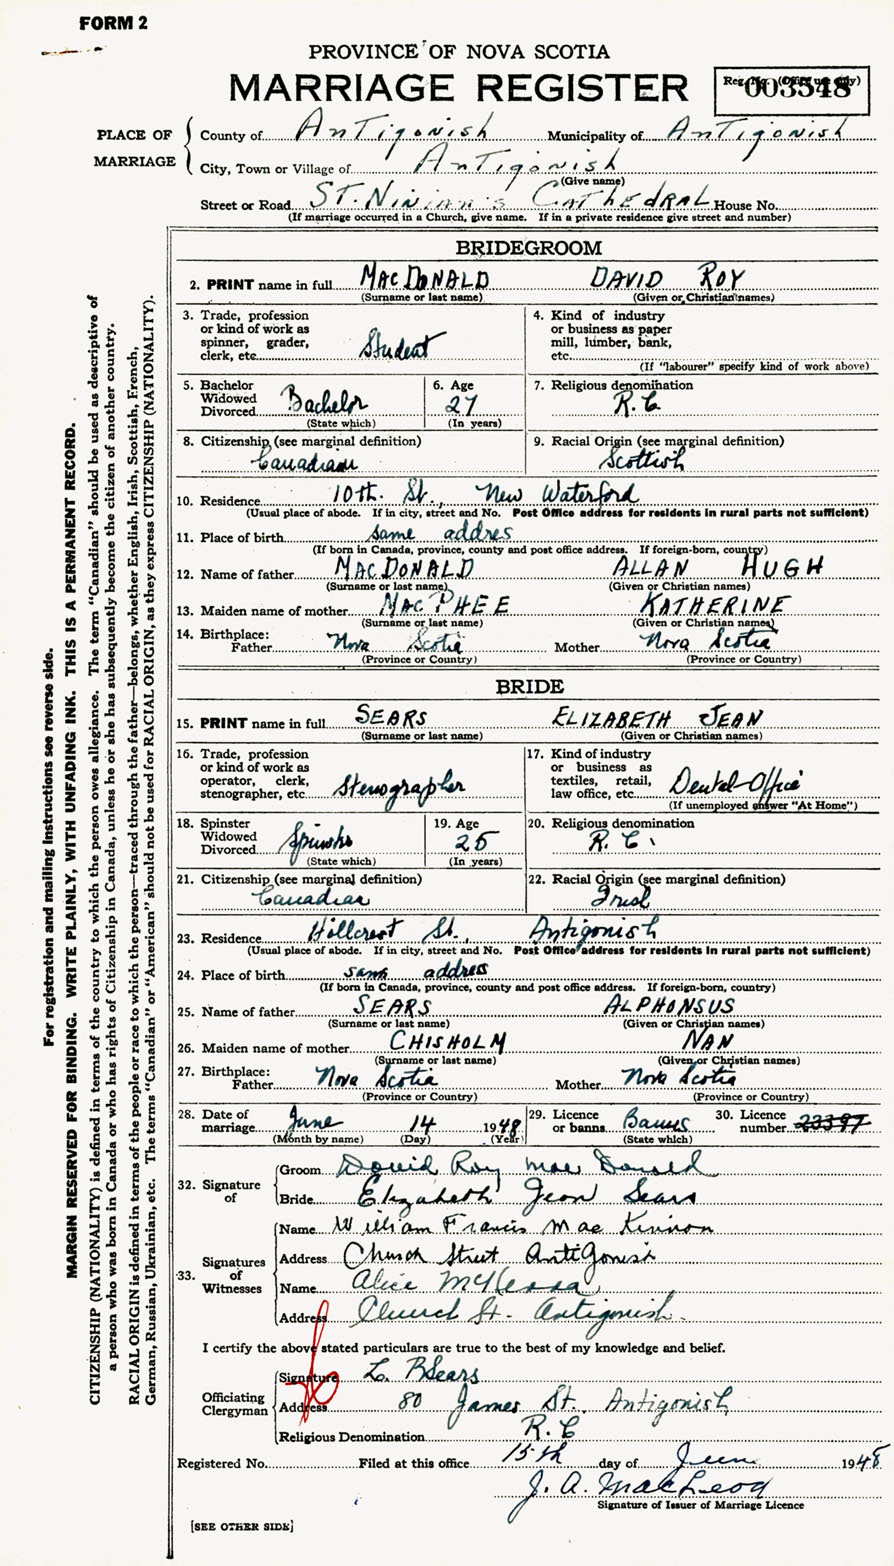 FORM 2
PROVINCE OF NOVA SCOTIA
MARRIAGE REGISTER
Reg. No. (Office use only)
003548
PLACE OF MARRIAGE
County of Antigonish Municipality of Antigonish
City, Town or Village of Antigonish
(Give name)
Street or Road ST. Ninian's Cathedral House No.
(If marriage occurred in a Church, give name. If in a private residence give street and number)
BRIDEGROOM
2. PRINT name in full MACDONALD DAVID ROY
(Surname or last name) (Given or Christian names)
3. Trade, profession or kind of work as spinner, grader, clerk, etc. Student
4. Kind of industry or business as paper mill, lumber, bank, etc.
(If "labourer" specify kind of work above)
5. Bachelor Widowed Divorced Bachelor
(State which)
6. Age 27
(In years)
7. Religious denomination R.C
8. Citizenship (see marginal definition) Canadian
9. Racial Origin (see marginal definition) Scottish
10. Residence 10th. St., New Waterford
(Usual place of abode. If in city, street and No. Post Office address for residents in rural parts not sufficient)
11. Place of birth same addres
(If born in Canada, province, county and post office address. If foreign-born, country)
12. Name of father MACDONALD ALLAN HUGH
(Surname or last name) (Given or Christian names)
13. Maiden name of mother MACPHEE KATHERINE
(Surname or last name) (Given or Christian names)
14. Birthplace:
Father Nova Scotia Mother Nova Scotia
(Province or Country) (Province or Country)
BRIDE
15. PRINT name in full SEARS ELIZABETH JEAN
(Surname or last name) (Given or Christian names)
16. Trade, profession or kind of work as operator, clerk, stenographer, etc. Stenographer
17. Kind of industry or business as textiles, retail, law office, etc. Dental-Office
(If unemployed answer "At Home")
18. Spinster Widowed Divorced Spinster
(State which)
19. Age 25
(In years)
20. Religious denomination R. C.
21. Citizenship (see marginal definition) Canadian
22. Racial Origin (see marginal definition) Irish
23. Residence Hillcrest St., Antigonish
(Usual place of abode. If in city, street and No. Post Office address for residents in rural parts not sufficient)
24. Place of birth same address
(If born in Canada, province, county and post office address. If foreign-born, country)
25. Name of father SEARS ALPHONSUS
(Surname or last name) (Given or Christian names)
26. Maiden name of mother CHISHOLM NAN
(Surname or last name) (Given or Christian names)
27. Birthplace:
Father Nova Scotia Mother Nova Scotia
(Province or Country) (Province or Country)
28. Date of marriage June 14 1948
(Month by name) (Day) (Year)
29. Licence or banns Banns
(State which)
30. Licence number 23397
32. Signature of
Groom David Roy Mac Donald
Bride Elizabeth Jean Sears
33. Signatures of Witnesses
Name William Francis Mac Kinnon
Address Church Street Antigonish
Name Alice
Address Church St. Antigonish.
I certify the above stated particulars are true to the best of my knowledge and belief.
Officiating Clergyman
Signature L. B Sears
Address 80 James St. Antigonish
Religious Denomination R.C
Registered No. Filed at this office 15th day of June 1948
J. A. MacLeod
Signature of Issuer of Marriage Licence
[SEE OTHER SIDE]
For registration and mailing instructions see reverse side.
MARGIN RESERVED FOR BINDING. WRITE PLAINLY, WITH UNFADING INK. THIS IS A PERMANENT RECORD.
CITIZENSHIP (NATIONALITY) is defined in terms of the country to which the person owes allegiance. The term "Canadian" should be used as descriptive of
a person who was born in Canada or who has rights of Citizenship in Canada, unless he or she has subsequently become the citizen of another country.
RACIAL ORIGIN is defined in terms of the people or race to which the person—traced through the father—belongs, whether English, Irish, Scottish, French,
German, Russian, Ukrainian, etc. The terms "Canadian" or "American" should not be used for RACIAL ORIGIN, as they express CITIZENSHIP (NATIONALITY).